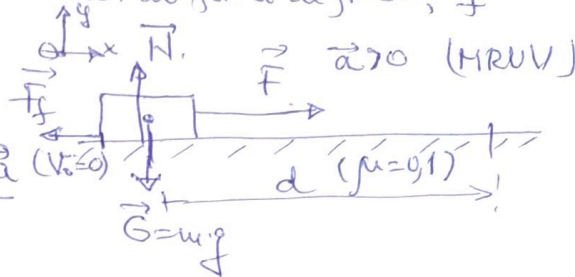 y
x
N
F
a>0 (MRUV)
Ff
(V₀=0)
d (μ=0,1)
G=m·g